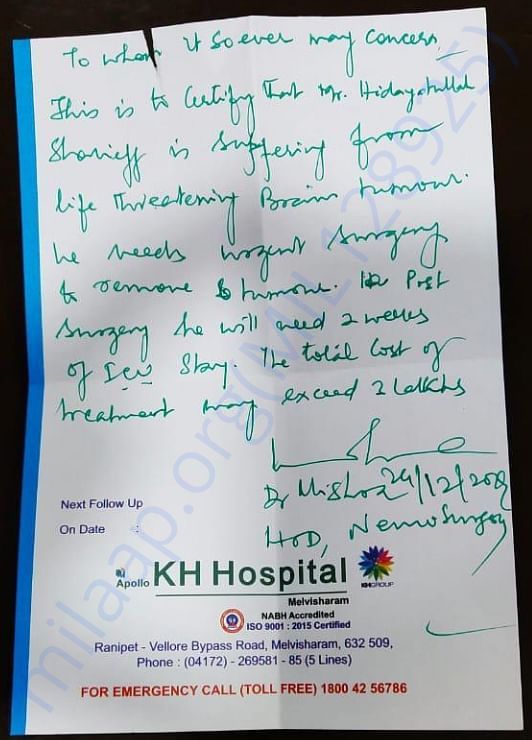 To whom it so ever may concern
This is to Certify that Mr. Hidayatullah
Sharieff is suffering from
life threatening Brain tumour.
he needs urgent surgery
to remove tumour. Post
surgery he will need 2 weeks
of ICU Stay. The total Cost of
treatment may exceed 2 lakhs
Dr Mishra 24/12/2019
HOD, Neurosurgery
Next Follow Up
On Date :
Apollo KH Hospital
KH GROUP
Melvisharam
NABH Accredited
ISO 9001 : 2015 Certified
Ranipet - Vellore Bypass Road, Melvisharam, 632 509,
Phone : (04172) - 269581 - 85 (5 Lines)
FOR EMERGENCY CALL (TOLL FREE) 1800 42 56786
milaap.org(MIL128925)